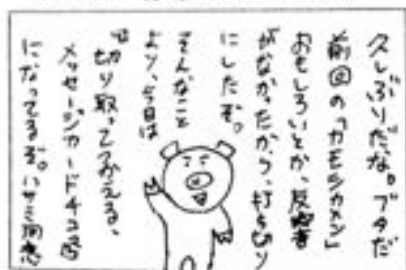 久しぶりだな。ブタだ
前回の「カモシカメン」
おもしろいとか、反響者
がなかったから、打ち切り
にしたぞ。
そんなこと
より、今日は
切り取ってつかえる、
メッセージカード4コマ
になってるぞ。ハサミ用意